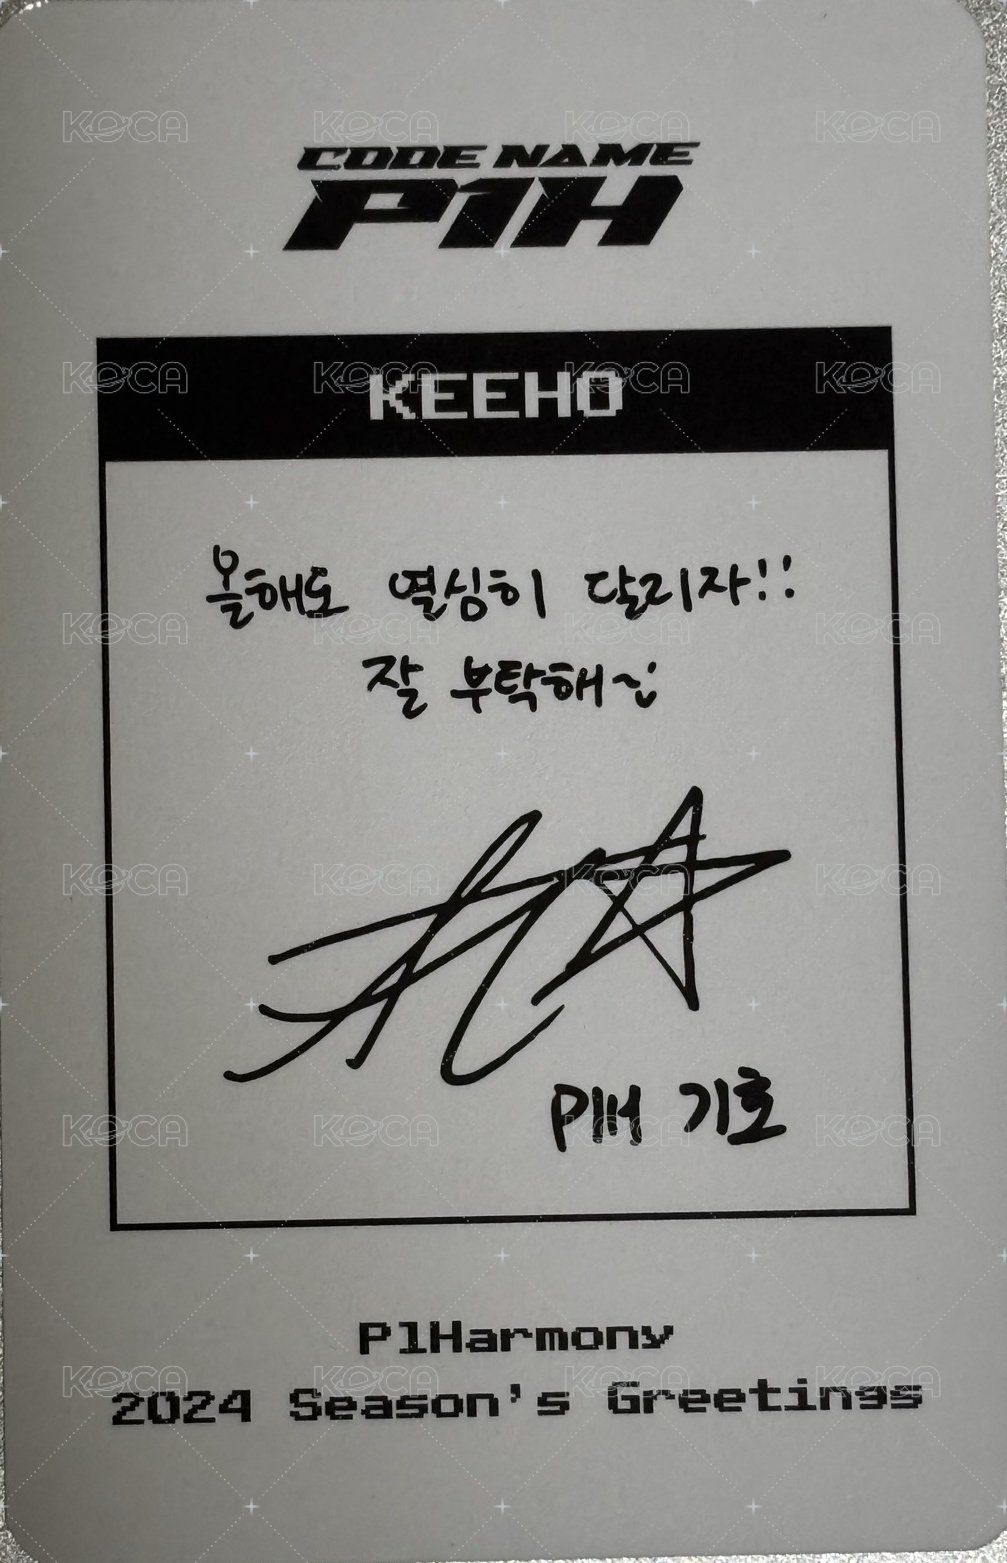 CODE NAME
P1H
KEEHO
올해도 열심히 달리자!!
잘 부탁해~:)
P1H 기호
P1Harmony
2024 Season's Greetings
KOCA